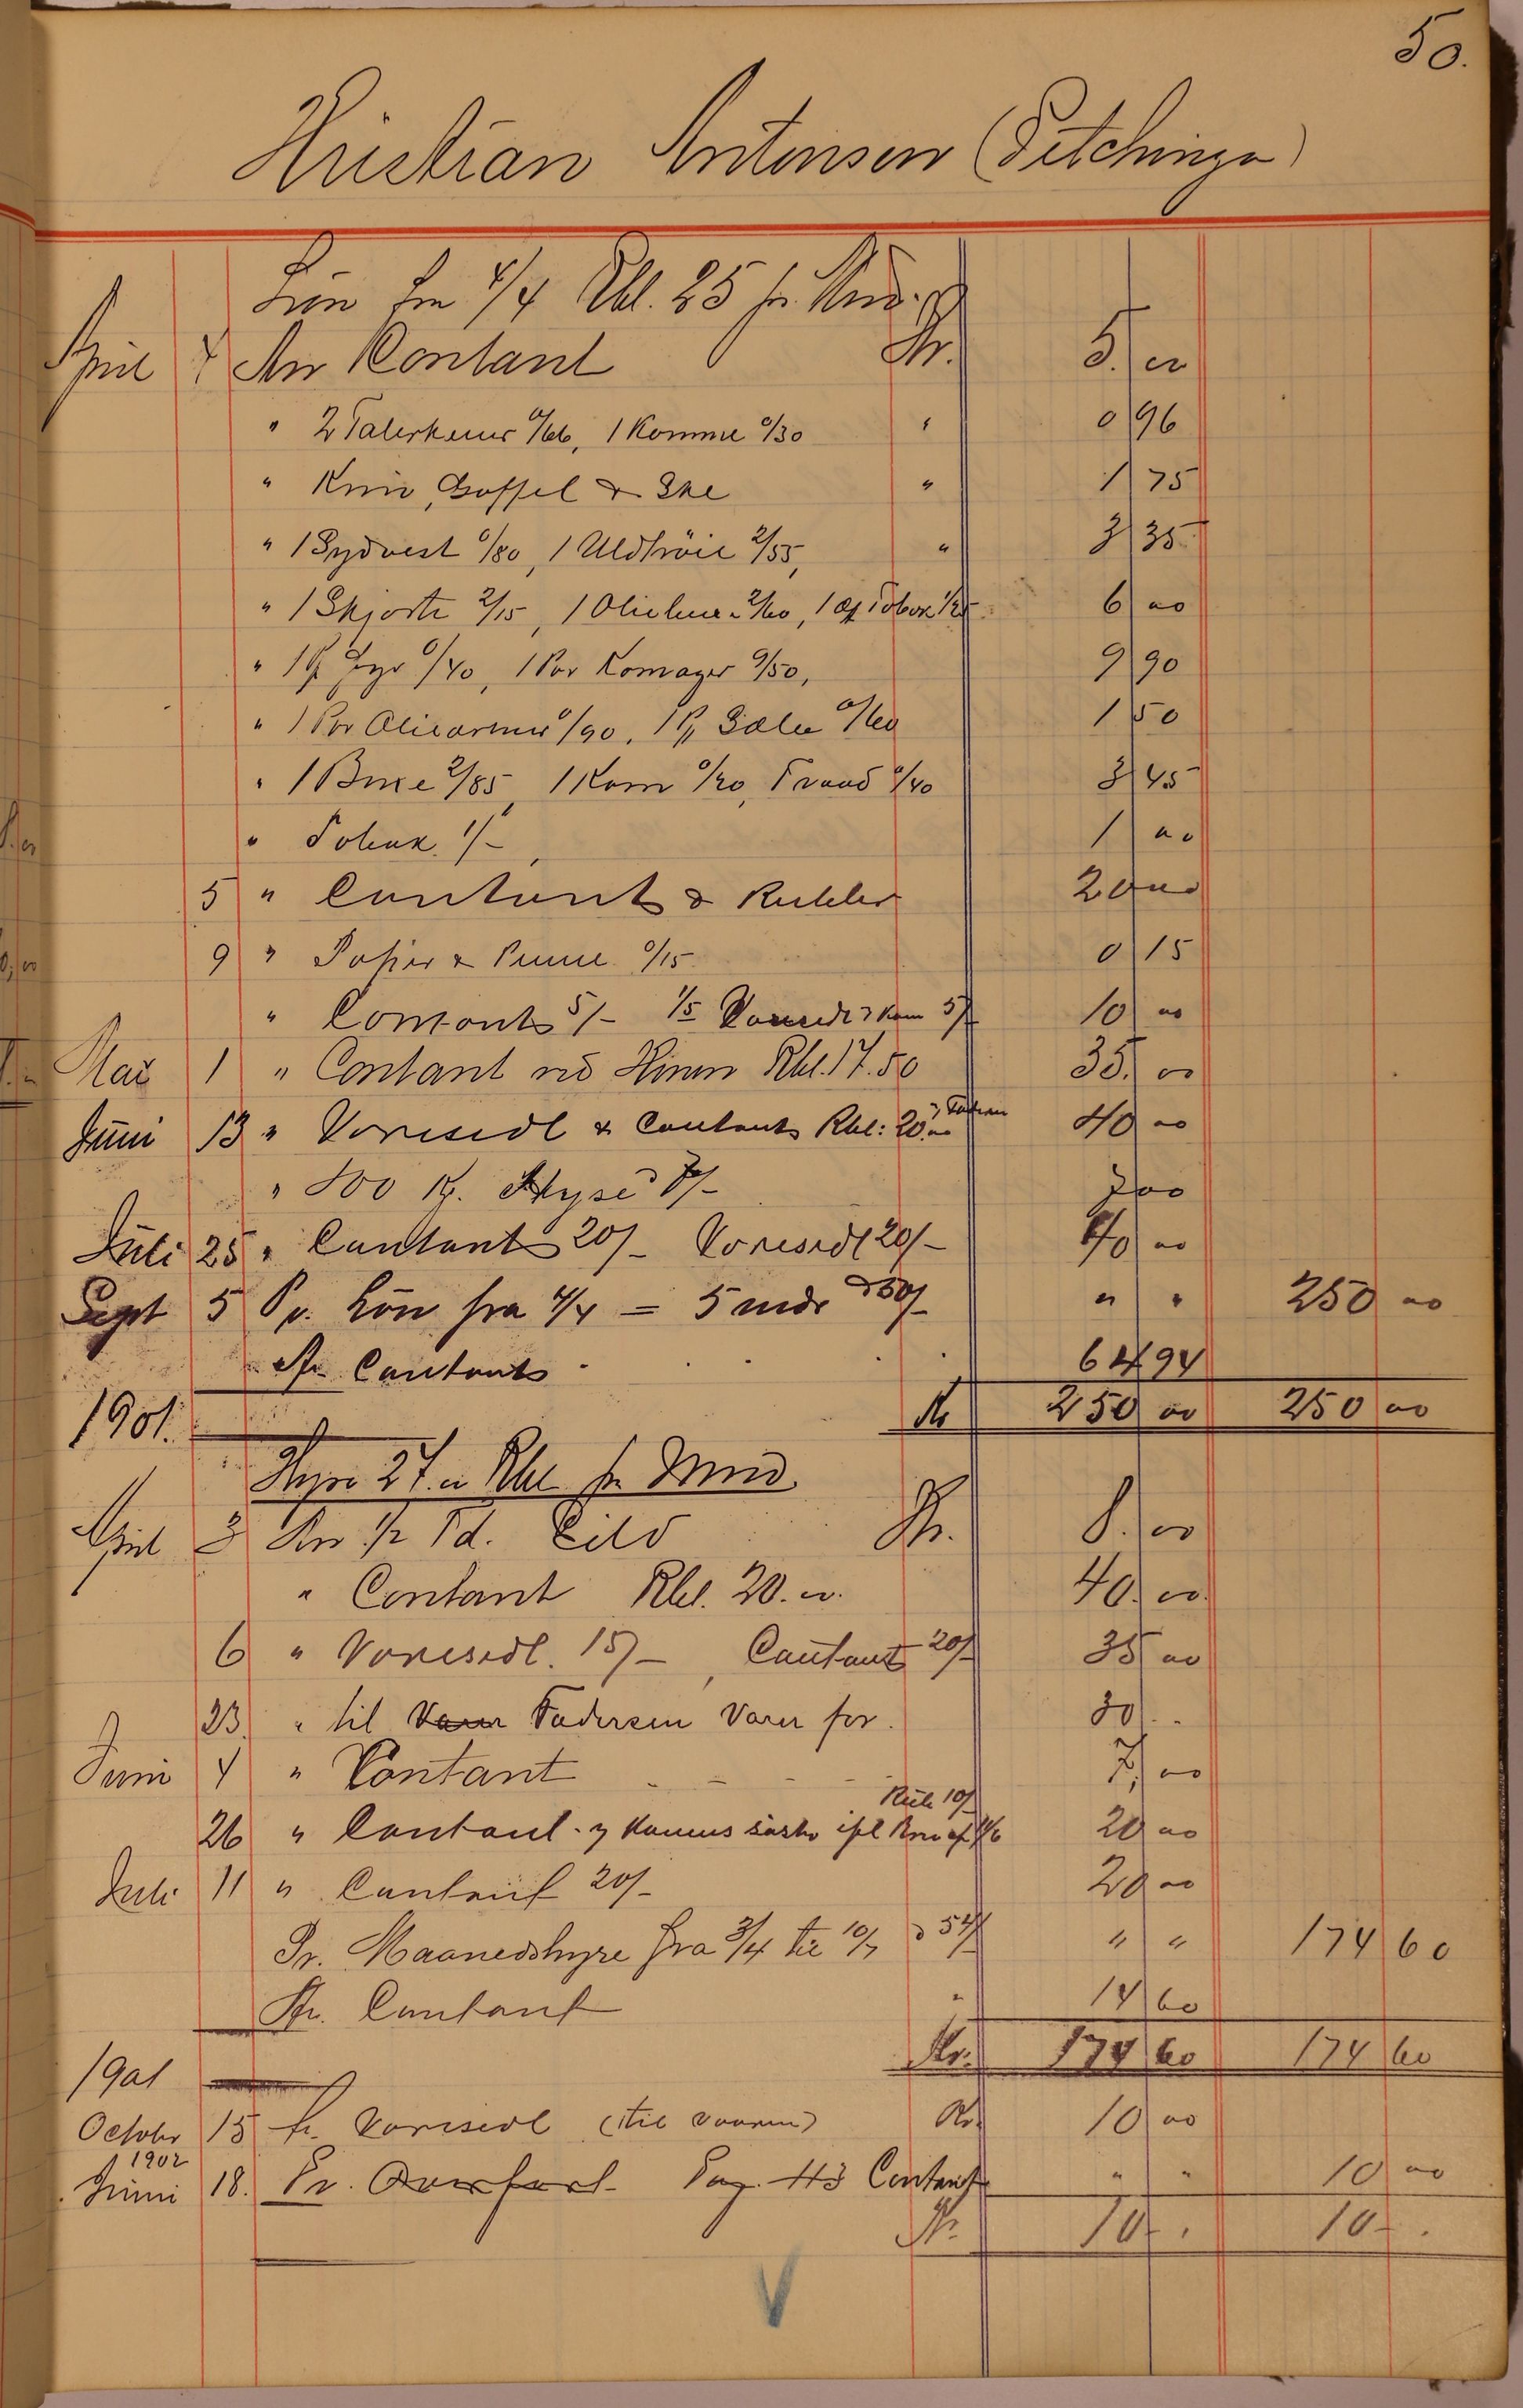 50.
Kristian Antonsen (Petchinga)
Lön fra 4/4 Rbl. 25 pr. Mnd.
April 4 An Contant Kr. 5. 00
" 2 Talerkener 0/66, 1 Komme 0/30 " 0 96
" Kniv, Gaffel & Ske " 1 75
" 1 Sydvest 0/80, 1 Uldtröie 2/55, " 3 35
" 1 Skjorte 2/15, 1 Oliebuxe 2/60, 1 Tobak 1/25 6 00
" 1 0/40, 1 Par Komager 9/50, 9 90
" 1 Par Oliearmer 0/90, 1 0/60 1 50
" 1 Buxe 2/85, 1 Kam 0/20, Traad 0/40 3 45
" Tobak 1/- 1 00
5 " Contant & Rubler 20 00
9 " Papir & Penne 0/15 0 15
" Contant 5/- 1/5 5/- 10 00
Mai 1 " Contant Rbl. 17.50 35. 00
Juni 13 " Varesedl & Contant Rbl: 20.00 40 00
" 100 Kg. Hyse 7/- 7 00
Juli 25 " Contant 20/- Varesedl 20/- 40 00
Sept 5 Pr. Lön fra 4/4 = 5 mdr á 50/- " " 250 00
An Contant 64 94
Kr 250 00 250 00
1901.
Hyre 27.00 Rbl pr Mnd.
April 3 An 1/2 Td. Sild Kr. 8. 00
" Contant Rbl. 20.00. 40. 00.
6 " Varesedl. 15/-, Contant 20/- 35 00
23. " til Varer Faderen Varer for. 30 . -
Juni 4 " Contant - - - - 7, 00
Rub 10/-
26 " Contant 20 00
Juli 11 " Contant 20/- 20 00
Pr. Maanedshyre fra 3/4 til 10/7 á 54/- " " 174 60
An. Contant " 14 60
Kr. 174 60 174 60
1901
October 15 An Varesedl (til vaaren) Kr. 10 00
1902
Juni 18. Pr. Overført Pag. 113 Contant " " 10 00
Kr. 10 - . 10 - .